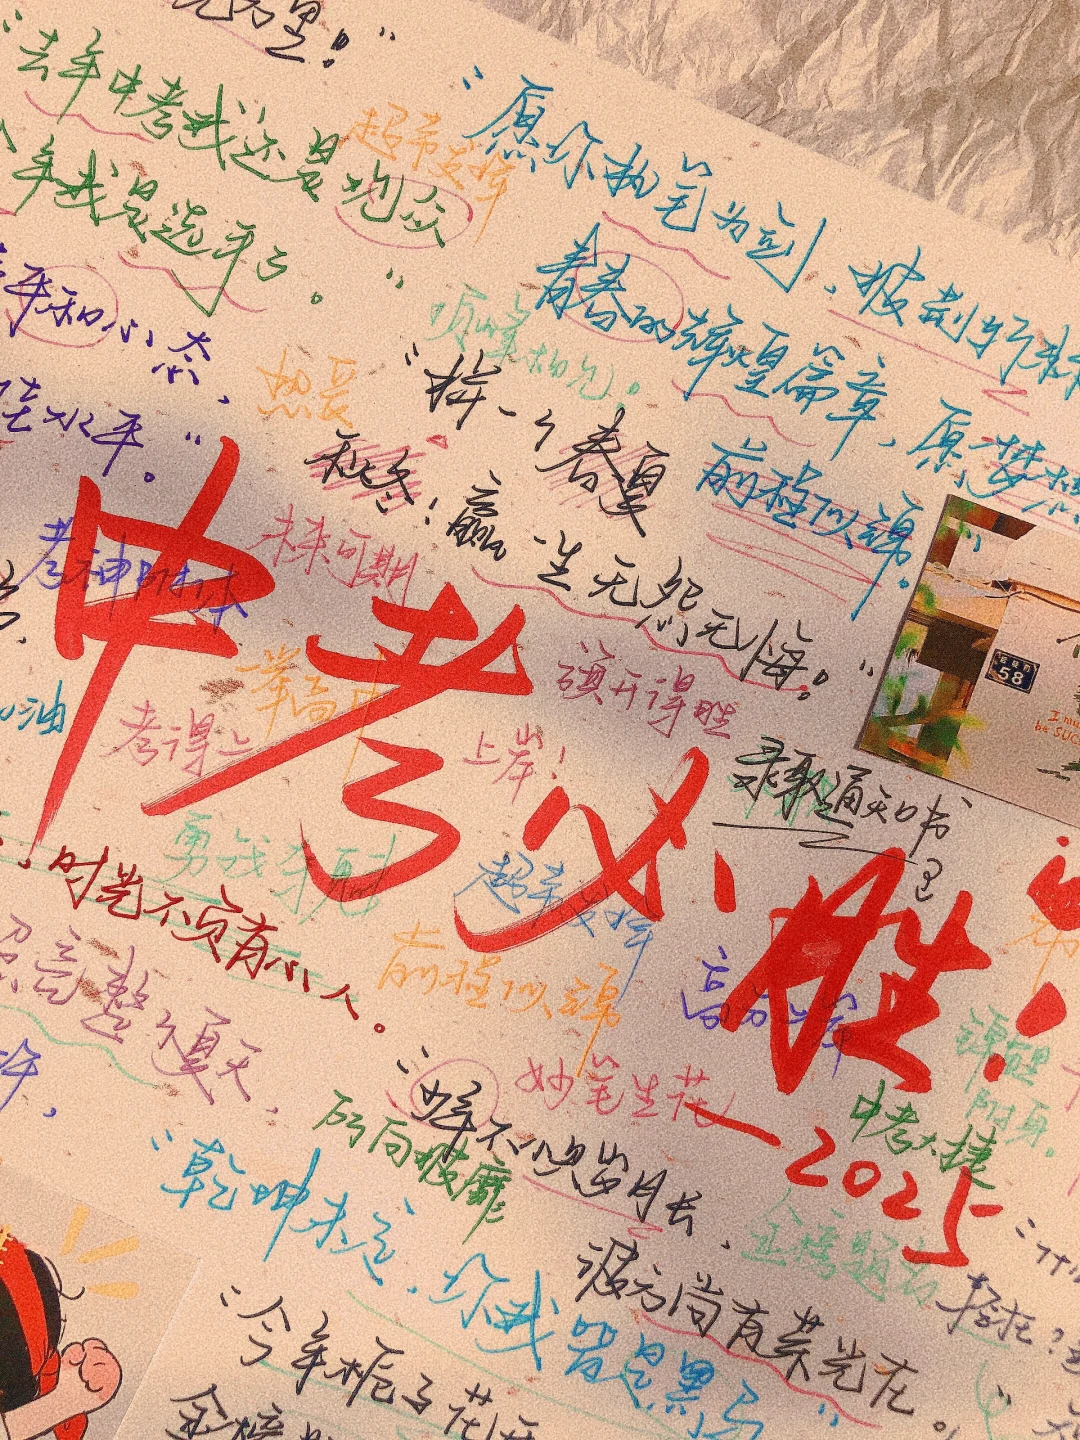 "去年中考我还是观众
年我是选手了。"
平和心态,
水平。"
"愿你执笔为剑,披荆斩棘
青春的辉煌篇章,愿梦想
前程似锦。
超常发挥
顶峰相见。
"拼一个春夏
秋冬!赢一生无怨无悔!"
考神附体
未来可期
中考必胜!
一举高中
旗开得胜
考得上
上岸!
录取通知书
58
勇战
超常发挥
时光不负有心人。
前程似锦
整个夏天,
妙笔生花
"少年不惧岁月长,
彼方尚有荣光在。"
所向披靡
中考大捷
附身。
—2025
金榜题名
"乾坤未定,你我皆是黑马"
轻狂?
"今年栀子花开
金榜